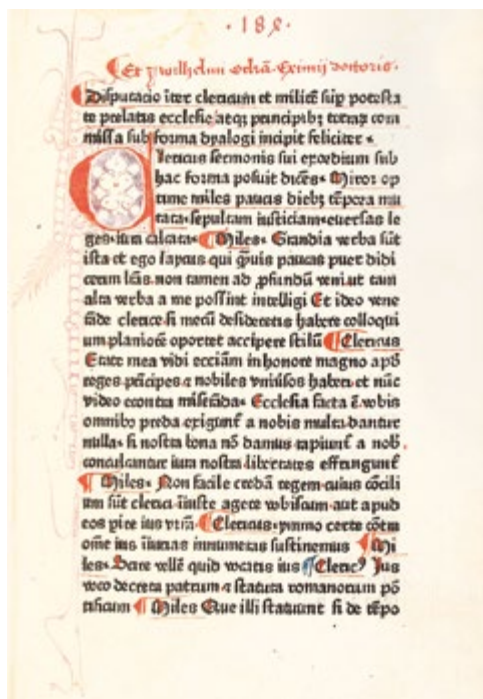 ·18·
Disputacio iter clericum et militē sup potesta
te prelatis ecclesie atq; principib; terraȝ com
missa sub forma dyalogi incipit feliciter·
Clericus sermonis sui exordium sub
hac forma posuit dicēs· Miror op
time miles paucis dieb; tēpora mu
tata·sepultam iusticiam·euersas le
ges·iura calcata· Miles· Grandia verba sūt
ista et ego laycus qui q̄uis paucas puer didi
cerim lr̄as·non tamen ad ꝓfundū veni·ut tam
alta verba a me possint intelligi Et ideo vene
rāde clerice·si mecū desideretis habere colloqui
um planiorē oportet accipere stilū Clericus
Etate mea vidi ecciam in honore magno apd
reges·prīcipes ⁊ nobiles vniūsos haberi·et nūc
video econtra miserāda· Ecclesia facta ē vobis
omnib; preda exigunt̄ a nobis multa dantur
nulla· si nostra bona nō damus rapiunt̄ a nob̄
conculcantur iura nostra·libertates effrangunt̄
Miles· Non facile credā regem cuius cōcili
um sūt clerici iniuste agere vobiscum·aut apud
eos ius vr̄m· Clericus·ymmo certe cōtra
om̄e ius iniurias innumeras sustinemus Mi
les· Scire vellē quid vocatis ius Cleric⁹ Jus
voco decreta patrum ⁊ statuta romanorum pō
tificum Miles Que illi statuunt si de tēpo